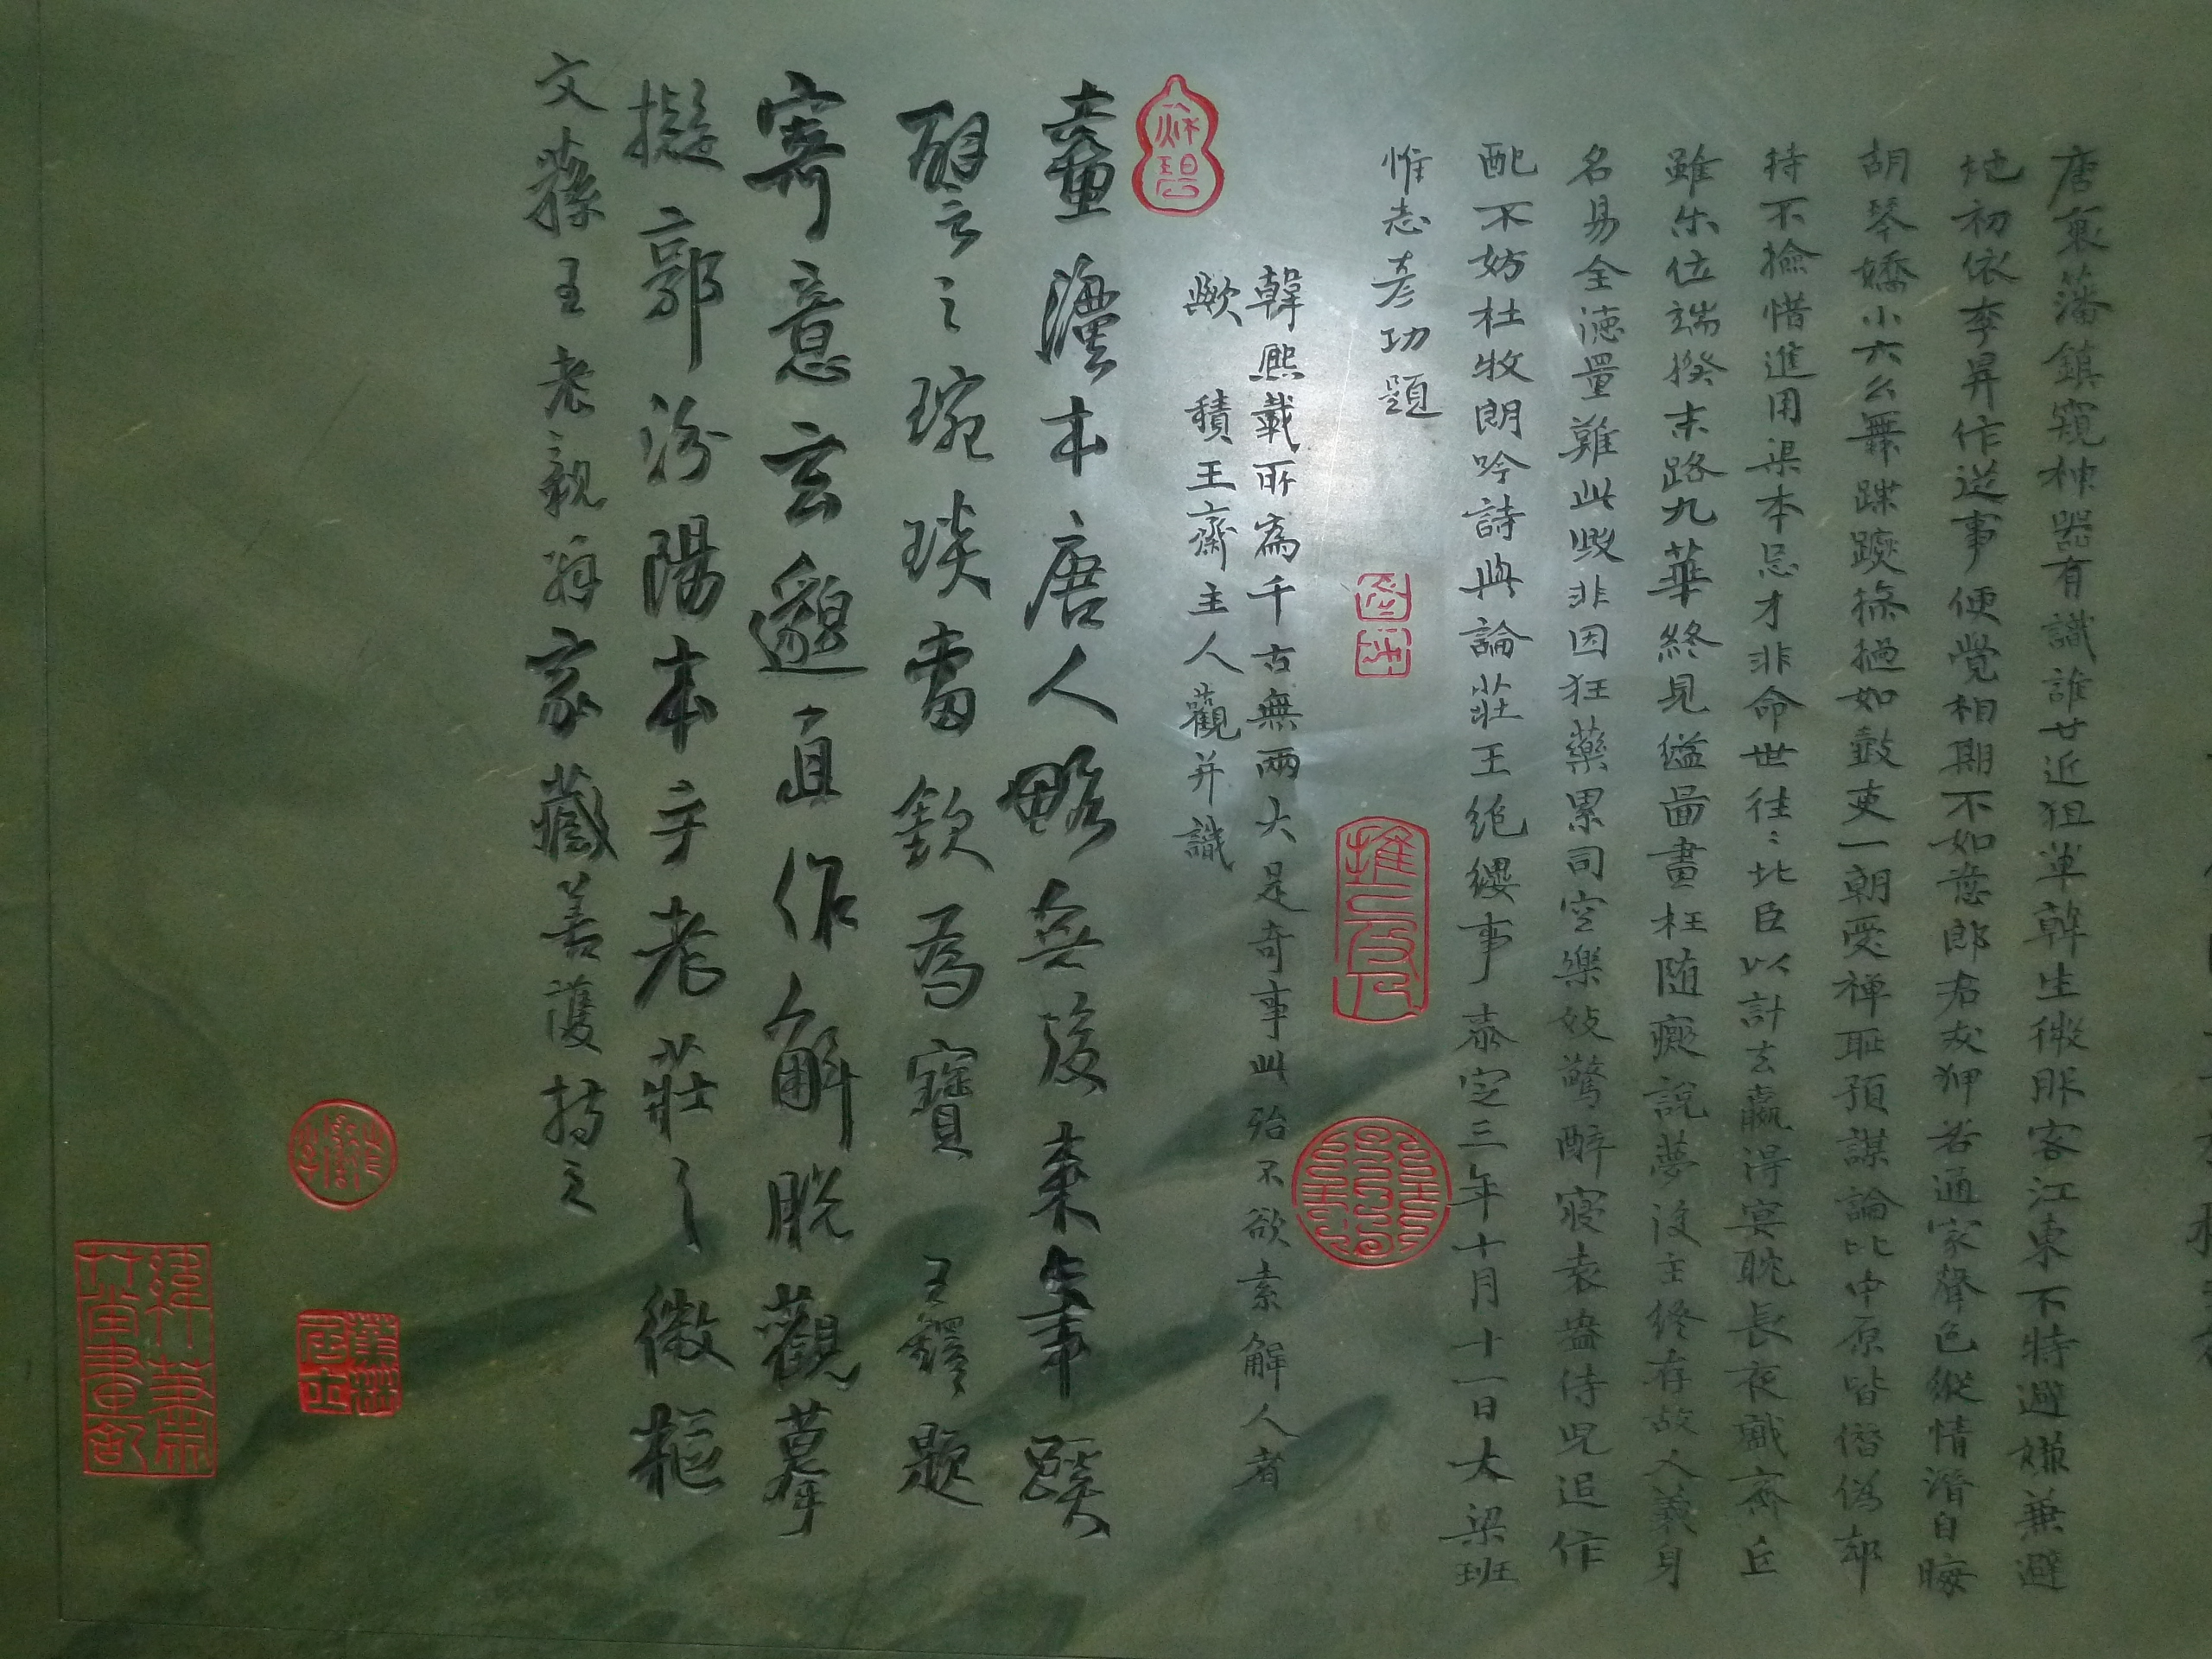 唐衰藩鎮窺神器有識誰甘近狙輩韓生微服客江東不特避嫌兼避
地初依李昇作逆事便覺相期不如意郎君友狎若通家聲色縱情潛自晦
胡琴嬌小六么舞蹀躞摻撾如鼓吏一朝受禪恥預謀論比中原皆僭偽却
持不撿惜進用渠本忌才非命世往〻北臣以計去贏得宴耽長夜戲齊丘
雖尔位端揆末路九華終見縊啚畫枉随癡說夢後主終存故人義身
名易全德量難此毀非因狂藥累司空樂妓驚醉寢袁盎侍兒追作
配不妨杜牧朗吟詩與論莊王绝纓事泰定三年十月十一日大梁班
惟志彥功題
韓熙載所為千古無兩大是奇事此殆不欲索解人者
歟 積玉齋主人觀并識
畫法本唐人略無後來筆蹊
琬琰當欽為寶 王鐸題
寄意玄邈直作解脫觀摹
擬郭汾陽本乎老莊之微樞
文蓀王老親
家藏善護持之